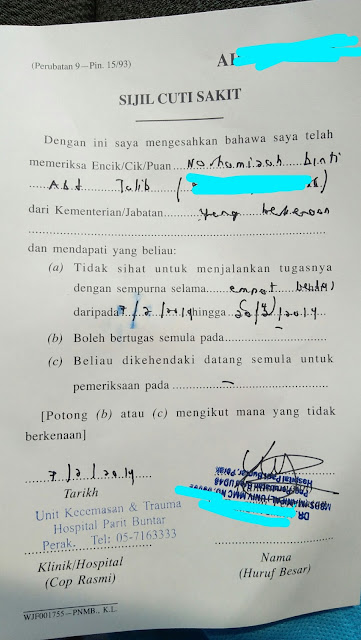 (Perubatan 9—Pin. 15/93)
SIJIL CUTI SAKIT
Dengan ini saya mengesahkan bahawa saya telah
memeriksa Encik/Cik/Puan Norhamizah binti
Abd Talib (
dari Kementerian/Jabatan yang berkenaan
dan mendapati yang beliau:
(a) Tidak sihat untuk menjalankan tugasnya
dengan sempurna selama empat belas
daripada 7/2/2014 hingga 20/2/2014
(b) Boleh bertugas semula pada
(c) Beliau dikehendaki datang semula untuk
pemeriksaan pada –
[Potong (b) atau (c) mengikut mana yang tidak
berkenaan]
7/2/2014
Tarikh
Unit Kecemasan & Trauma
Hospital Parit Buntar
Perak. Tel: 05-7163333
Klinik/Hospital
(Cop Rasmi)
DR.
Hospital Parit Buntar, Perak
Nama
(Huruf Besar)
WJF001755—PNMB., K.L.